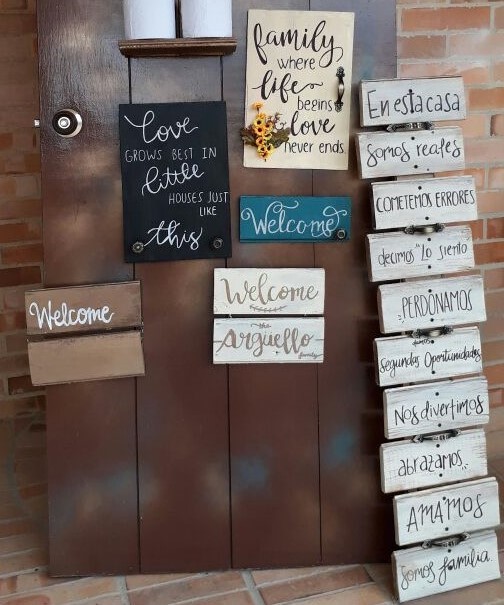 family
where
life
begins
love
never ends
Love
GROWS BEST IN
little
HOUSES JUST
LIKE
this
Welcome
Welcome
Welcome
the
Arguello
family
En esta casa
Somos reales
COMETEMOS ERRORES
decimos "Lo siento
PERDONAMOS
damos
Segundas Oportunidades
Nos divertimos
abrazamos..
AMAMOS
Somos familia.